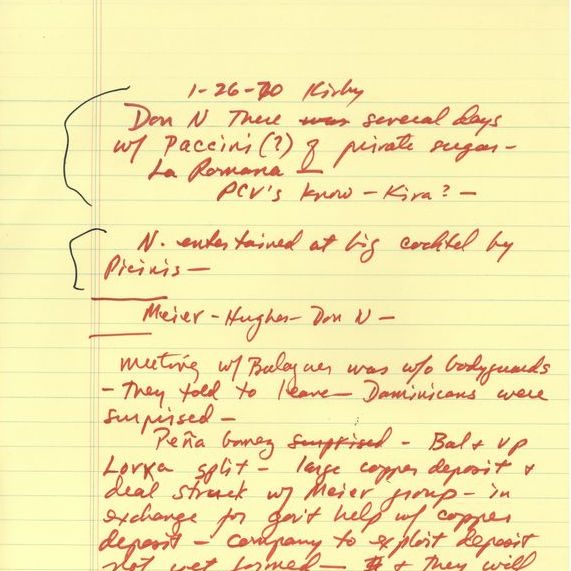 1-26-70 Kirby
Don N There was several days
w/ Paccini(?) of private sugar -
La Romana -
PCV's know - Kira? -
N. entertained at big cocktel by
Picinis -
Meier - Hughes - Don N -
meeting w/ Balaguer was w/o bodyguards
- They told to leave - Dominicans were
surprised -
Peña Gomez surprised - Bal & VP
Lorra split - large copper deposit &
deal struck w/ Meier group - in
exchange for gov't help w/ copper
deposit - company to exploit deposit
not yet formed - & they will